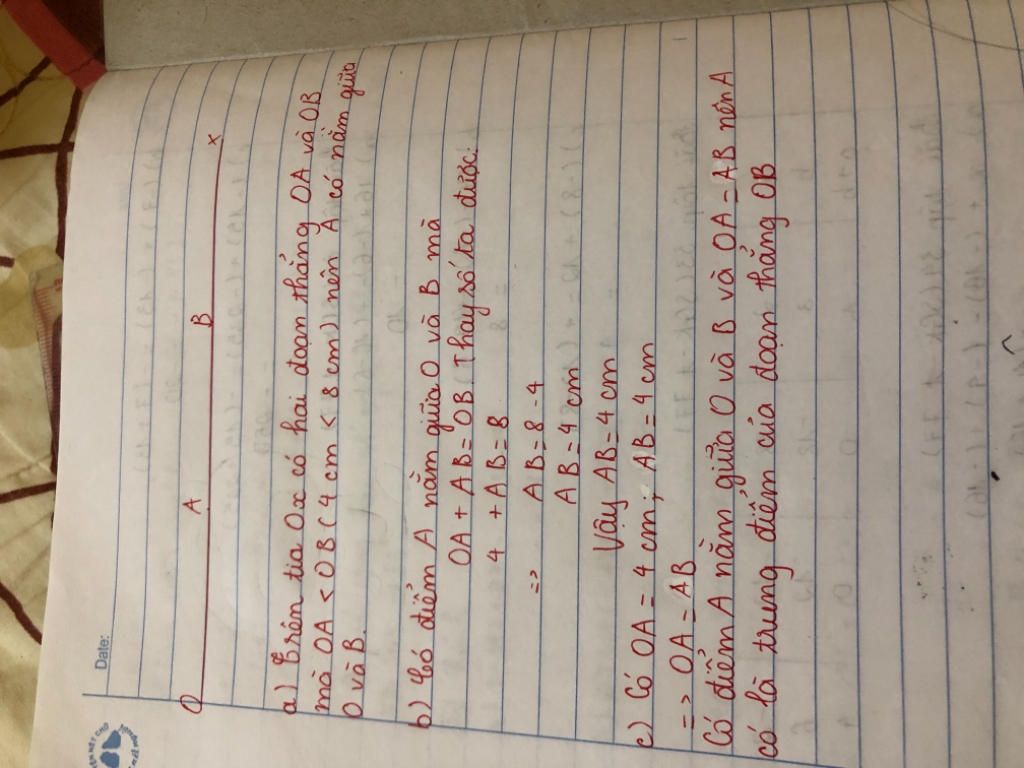 Date:
O A B x
a) Trên tia Ox có hai đoạn thẳng OA và OB
mà OA < OB (4 cm < 8 cm) nên A có nằm giữa
O và B.
b) Có điểm A nằm giữa O và B mà
OA + AB = OB (Thay số ta được:
4 + AB = 8
=> AB = 8 - 4
AB = 4 cm
Vậy AB = 4 cm
c) Có OA = 4 cm; AB = 4 cm
=> OA = AB
Có điểm A nằm giữa O và B và OA = AB nên A
có là trung điểm của đoạn thẳng OB